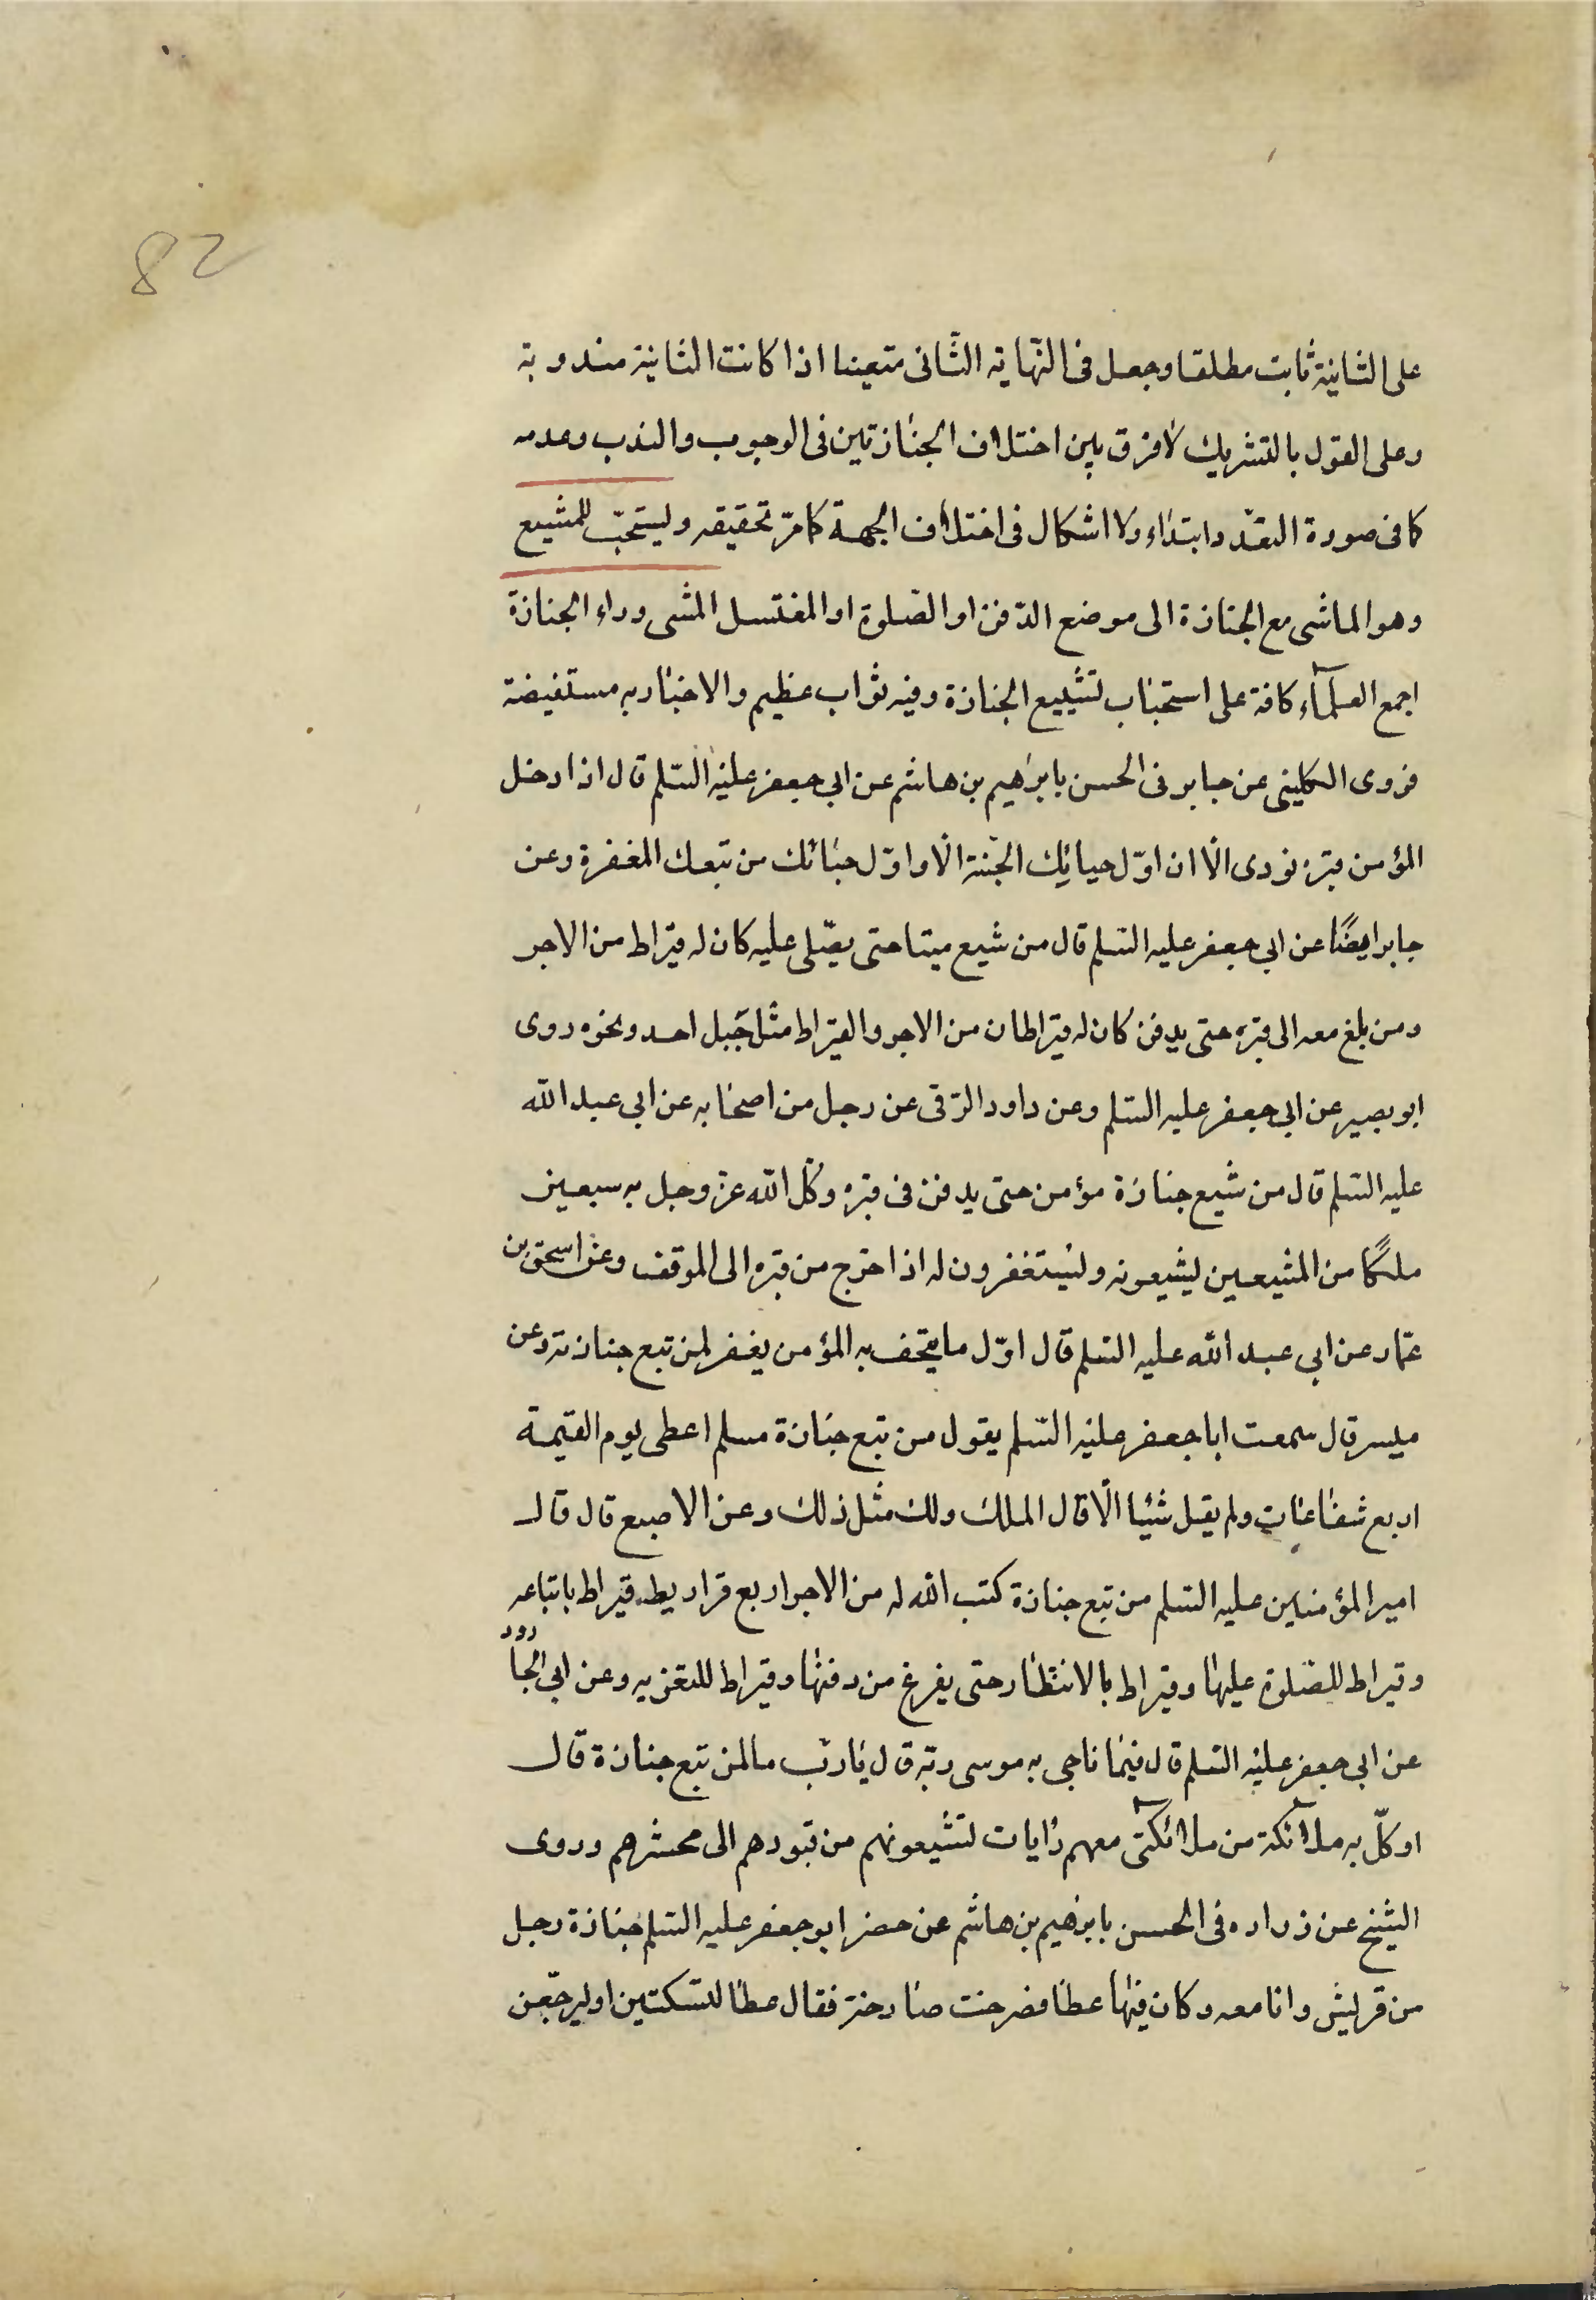 82
على الثانية ثابت مطلقا وجعل فى النّهاية الثّانى متعينا اذا كانت الثانية مندوبة
وعلى القول بالتشريك لافرق بين اختلاف الجنازتين فى الوجوب والندب وعدمه
كما فى صورة التعدّد ابتداء ولا اشكال فى اختلاف الجهة كما مرّ تحقيقه وليستحبّ للمشيع
وهو الماشى مع الجنازة الى موضع الدّفن او الصّلوة او المغتسل المشى وراء الجنازة
اجمع العلماء كافة على استحباب تشييع الجنازة وفيه ثواب عظيم والاخبار به مستفيضة
فروى الكلينى عن جابر فى الحسن بابراهيم بن هاشم عن ابى جعفر عليه السّلم قال اذا دخل
المؤمن قبره نودى الّا ان اوّل حبائك الجنّة الّا واوّل حبائك من تبعك المغفرة وعن
جابر ايضًا عن ابى جعفر عليه السّلم قال من شيع ميتا حتى يصّلى عليه كان له قيراط من الاجر
ومن بلغ معه الى قبره حتى يدفن كان له قيراطان من الاجر والقيراط مثل جَبل احد ونحوه روى
ابو بصير عن ابى جعفر عليه السّلم وعن داود الرّقى عن رجل من اصحابه عن ابى عبد الله
عليه السّلم قال من شيع جنازة مؤمن حتى يدفن فى قبره وكّل الله عزّ وجل به سبعين
ملكًا من المشيعين يشيعونه وليستغفرون له اذا خرج من قبره الى الموقف وعن اسحق بن
عمّار عن ابى عبد الله عليه السّلم قال اوّل ما يتحف به المؤمن يغفر لمن تبع جنازته وعن
ميسر قال سمعت ابا جعفر عليه السّلم يقول من تبع جنازة مسلم اعطى يوم القيمة
اربع شفاعات ولم يقل شيئا الّا قال الملك ولك مثل ذلك وعن الاصبع قال قال
امير المؤمنين عليه السّلم من تبع جنازة كتب الله له من الاجر اربع قراريط قيراط باتباعه
وقيراط للصّلوة عليها وقيراط بالانتظار حتى يفرغ من دفنها وقيراط للتعزيه وعن ابى الجارود
عن ابى جعفر عليه السّلم قال فيما ناجى به موسى ربّه قال يا ربّ ما لمن تبع جنازة قال
اوكلّ به ملائكة من ملائكتى معهم رايات تشيعونهم من قبورهم الى محشرهم وروى
الشيخ عن زراره فى الحسن بابراهيم بن هاشم عن حضر ابو جعفر عليه السّلم جنازة رجل
من قريش وانا معه وكان فيها عطا فصرخت صارخة فقال عطا لتسكتين او ليرجّعن